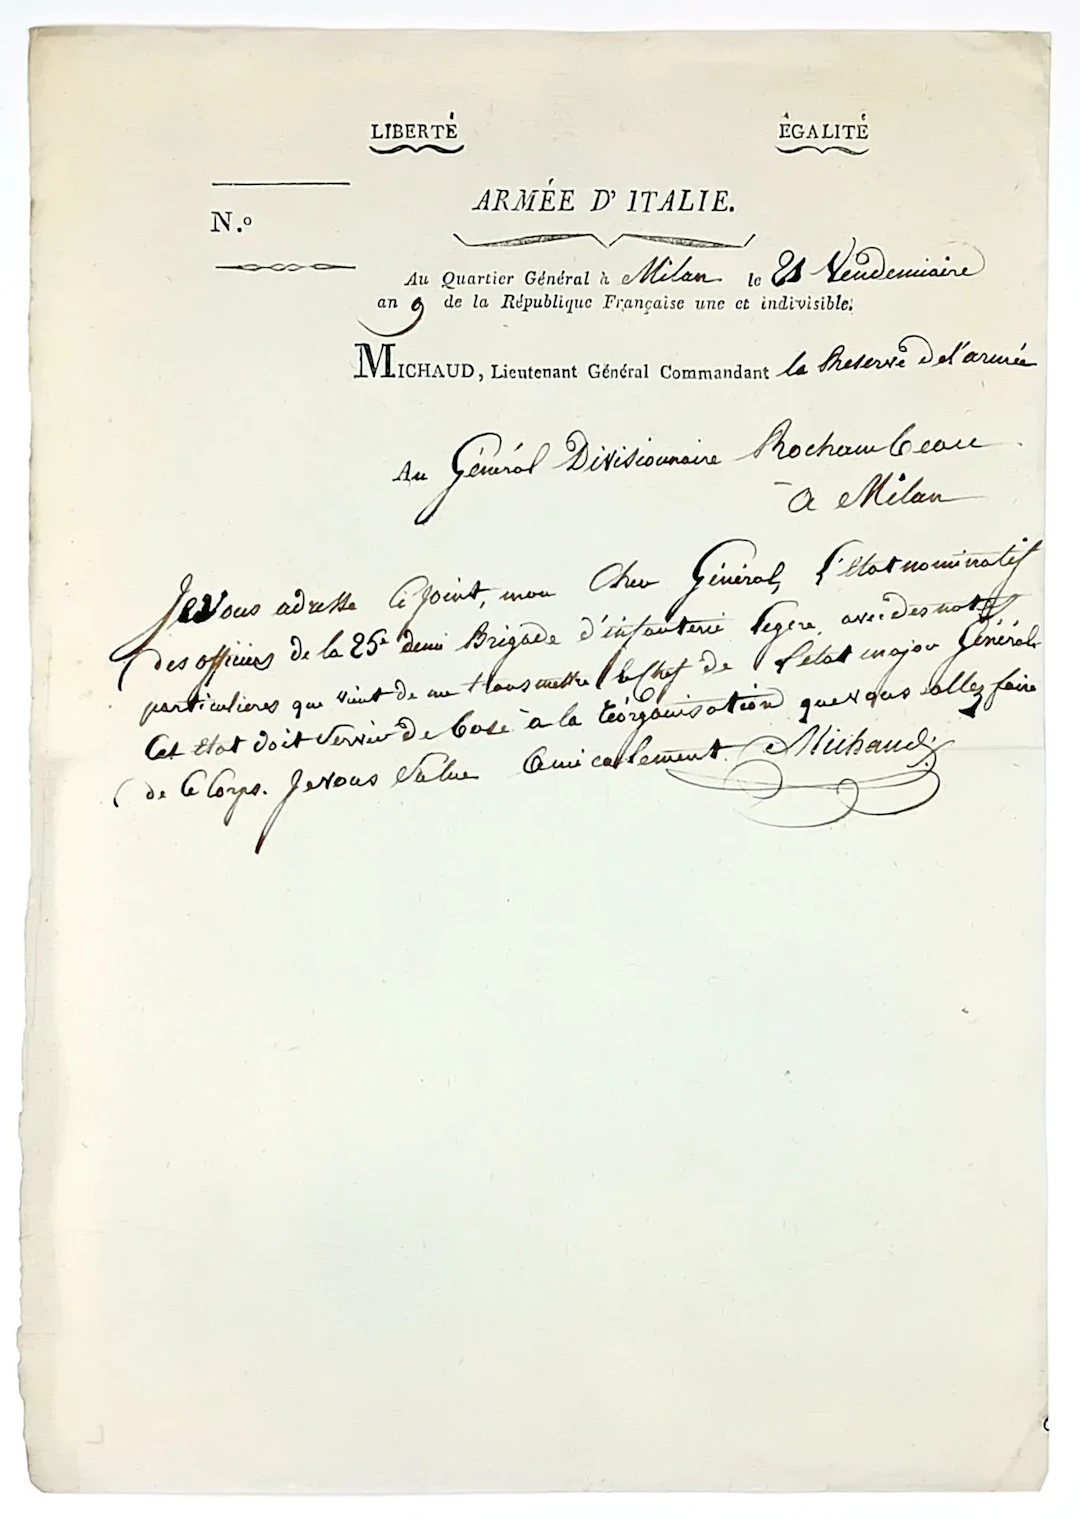 LIBERTÉ ÉGALITÉ
ARMÉE D' ITALIE.
N.º
Au Quartier Général à Milan le 21 Vendemiaire
an 9 de la République Française une et indivisible.
MICHAUD, Lieutenant Général Commandant la Reserve de l'armée
Au Général Divisionnaire Rochambeau
à Milan
Je vous adresse Ci joint, mon Cher Général, l'Etat nominatif
des officiers de la 25e demi Brigade d'infanterie legere, avec des notes
particulieres que vient de me transmettre le Chef de l'etat major Général
Cet Etat doit servir de base à la réorganisation que vous allez faire
de Ce Corps. Je vous Salue Amicalement Michaud